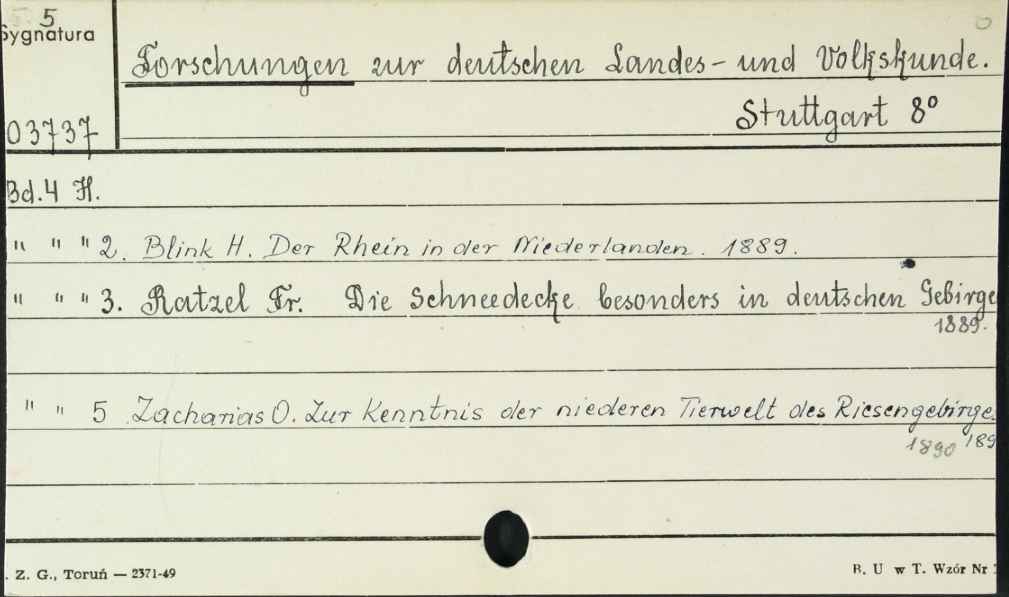 5
Sygnatura
Forschungen zur deutschen Landes- und Volkskunde.
Stuttgart 8°
03737
Bd. 4 H.
" " " 2. Blink H. Der Rhein in der Niederlanden. 1889.
" " " 3. Ratzel Fr. Die Schneedecke besonders in deutschen Gebirge
1889.
" " 5 Zacharias O. Zur Kenntnis der niederen Tierwelt des Riesengebirge
1890 189
. Z. G., Toruń — 2371-49
B. U w T. Wzór Nr